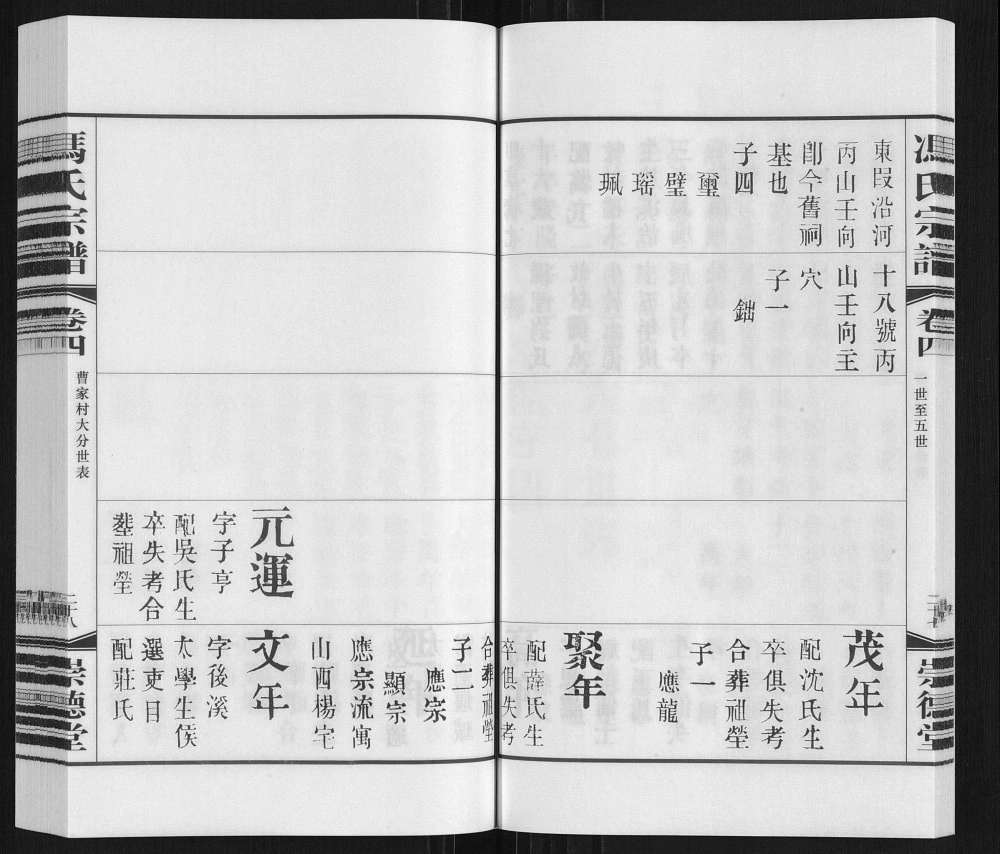 馮氏宗譜
卷四
一世至五世
崇德堂
東叚沿河
丙山壬向
卽今舊祠
基也
子四
璽
璧
瑶
珮
十八號丙
山壬向主
穴
子一
鈯
茂年
配沈氏生
卒俱失考
合葬祖塋
子一
應龍
聚年
配薛氏生
卒俱失考
合葬祖塋
子二
應宗
顯宗
應宗流寓
山西楊宅
元運
字子亨
配吳氏生
卒失考合
塟祖塋
文年
字後溪
太學生侯
選吏目
配莊氏
馮氏宗譜
卷四
曹家村大分世表
二十八
崇德堂